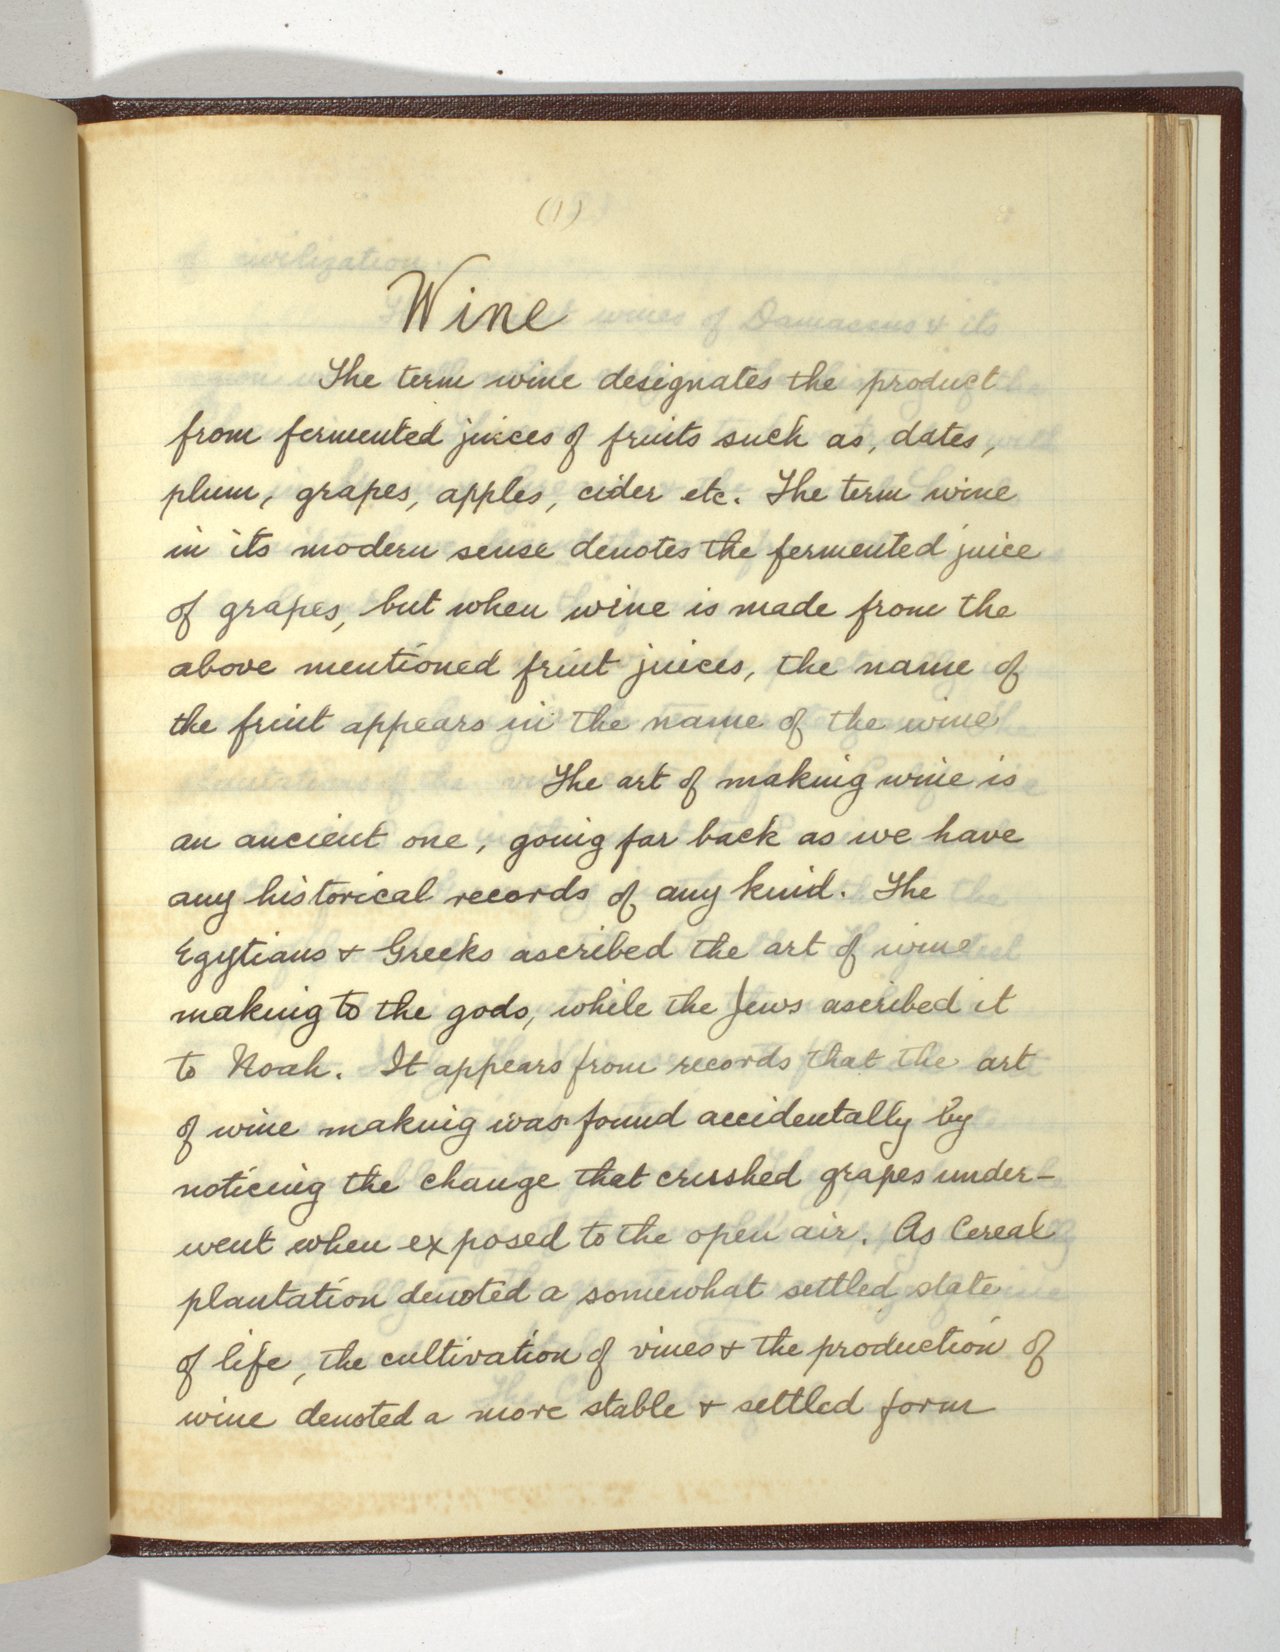 (1)
Wine
The term wine designates the product
from fermented juices of fruits such as, dates,
plum, grapes, apples, cider etc. The term wine
in its modern sense denotes the fermented juice
of grapes, but when wine is made from the
above mentioned fruit juices, the name of
the fruit appears in the name of the wine
The art of making wine is
an ancient one, going far back as we have
any historical records of any kind. The
Egytians & Greeks ascribed the art of wine
making to the gods, while the Jews ascribed it
to Noah. It appears from records that the art
of wine making was found accidentally by
noticing the change that crushed grapes under-
went when exposed to the open air. As Cereal
plantation denoted a somewhat settled state
of life, the cultivation of vines & the production of
wine denoted a more stable & settled form